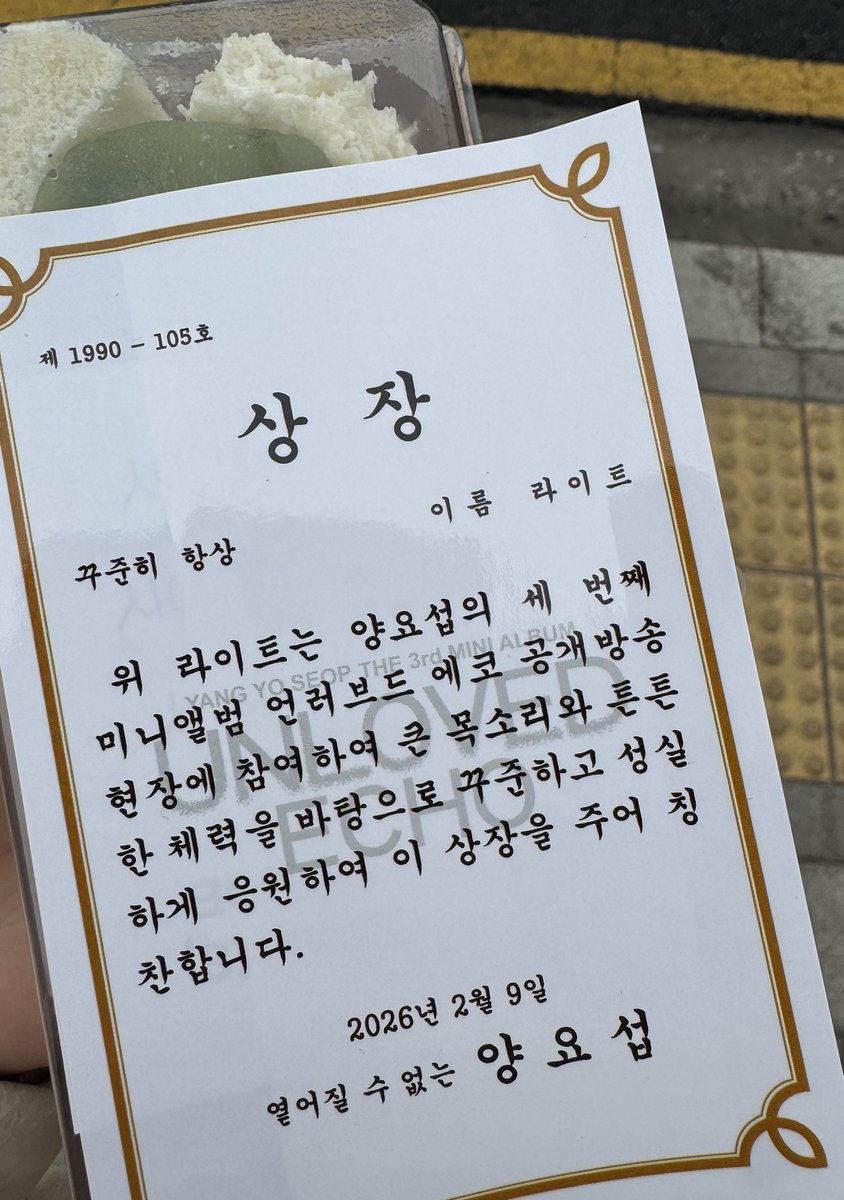 제 1990 - 105호
상 장
이름 라이트
꾸준히 항상
위 라이트는 양요섭의 세 번째
미니앨범 언러브드 에코 공개방송
현장에 참여하여 큰 목소리와 튼튼
한 체력을 바탕으로 꾸준하고 성실
하게 응원하여 이 상장을 주어 칭
찬합니다.
YANG YO SEOP THE 3rd MINI ALBUM
UNLOVED
ECHO
2026년 2월 9일
옅어질 수 없는 양요섭